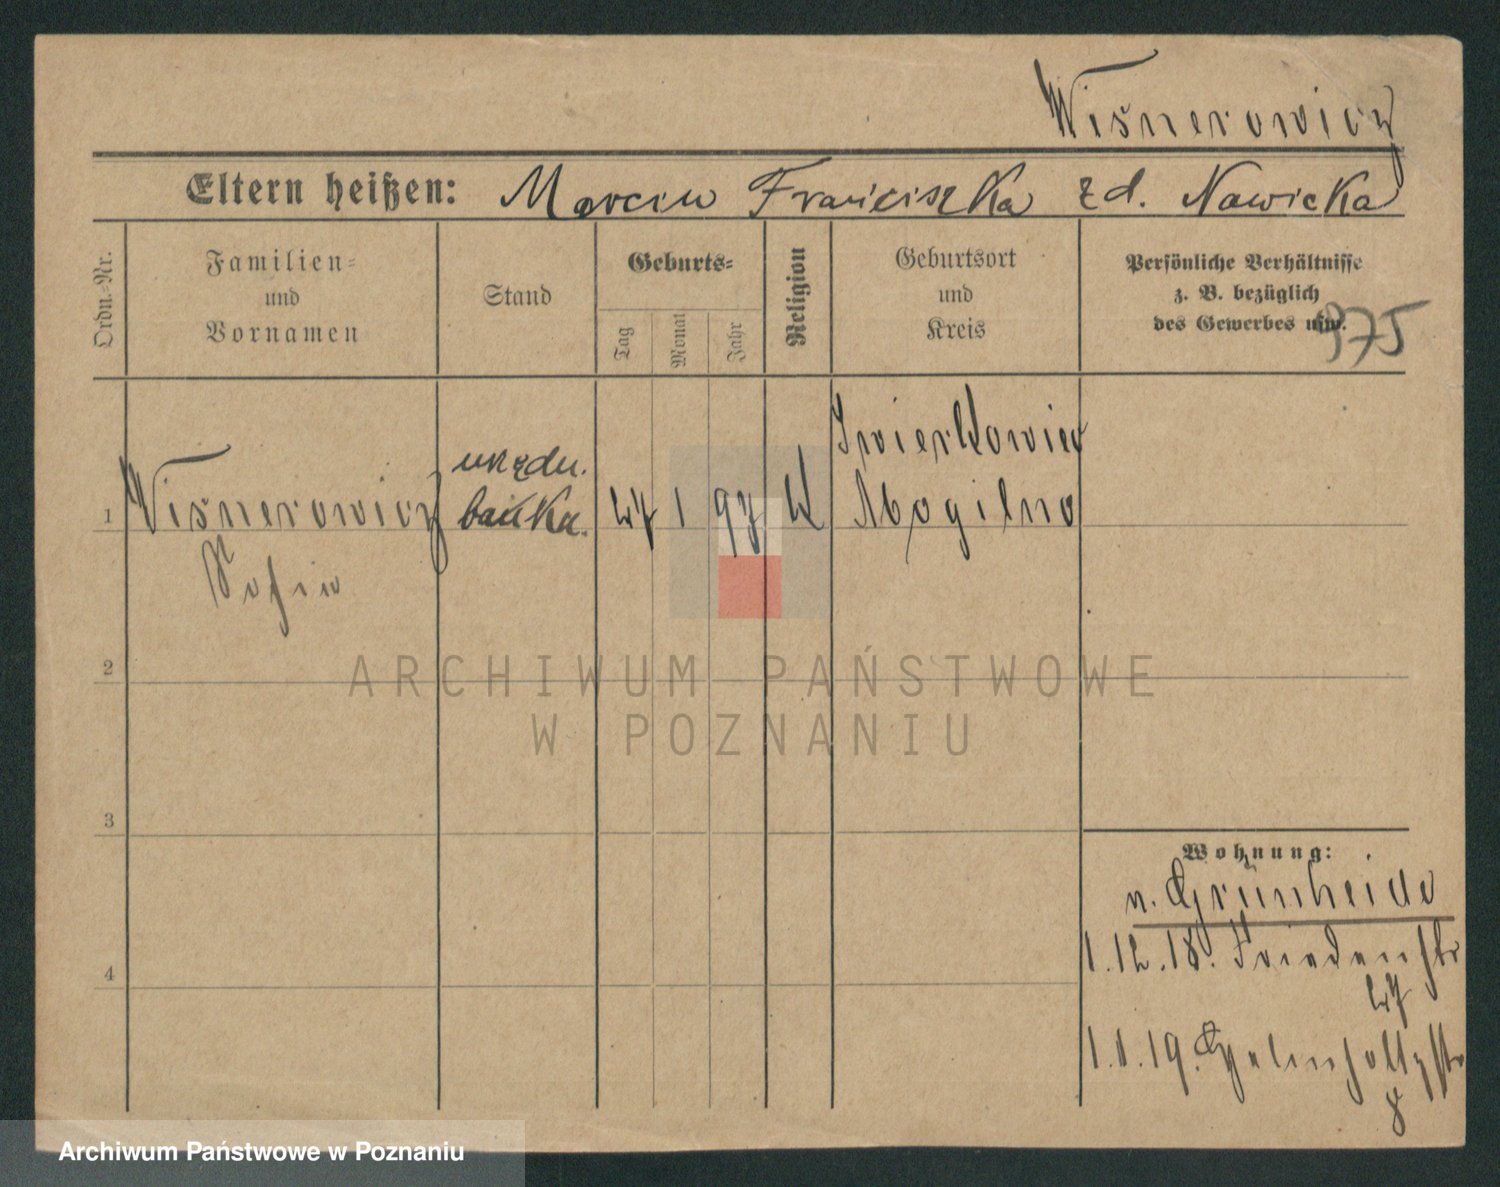 Wiśnerowicz
Eltern heißen: Marcin Franciszka zd. Nawicka
Ordn.-Nr.
Familien-
und
Vornamen
Stand
Geburts-
Tag
Monat
Jahr
Religion
Geburtsort
und
Kreis
Persönliche Verhältnisse
z. B. bezüglich
des Gewerbes usw.
375
1
Wiśnerowicz
Sofie
urzędn.
bank.
1
97
k
Mogilno
2
3
4
Wohnung:
v. Grünheide
1.12.18. Friedenstr
1.1.19.
8
ARCHIWUM PAŃSTWOWE
W POZNANIU
Archiwum Państwowe w Poznaniu